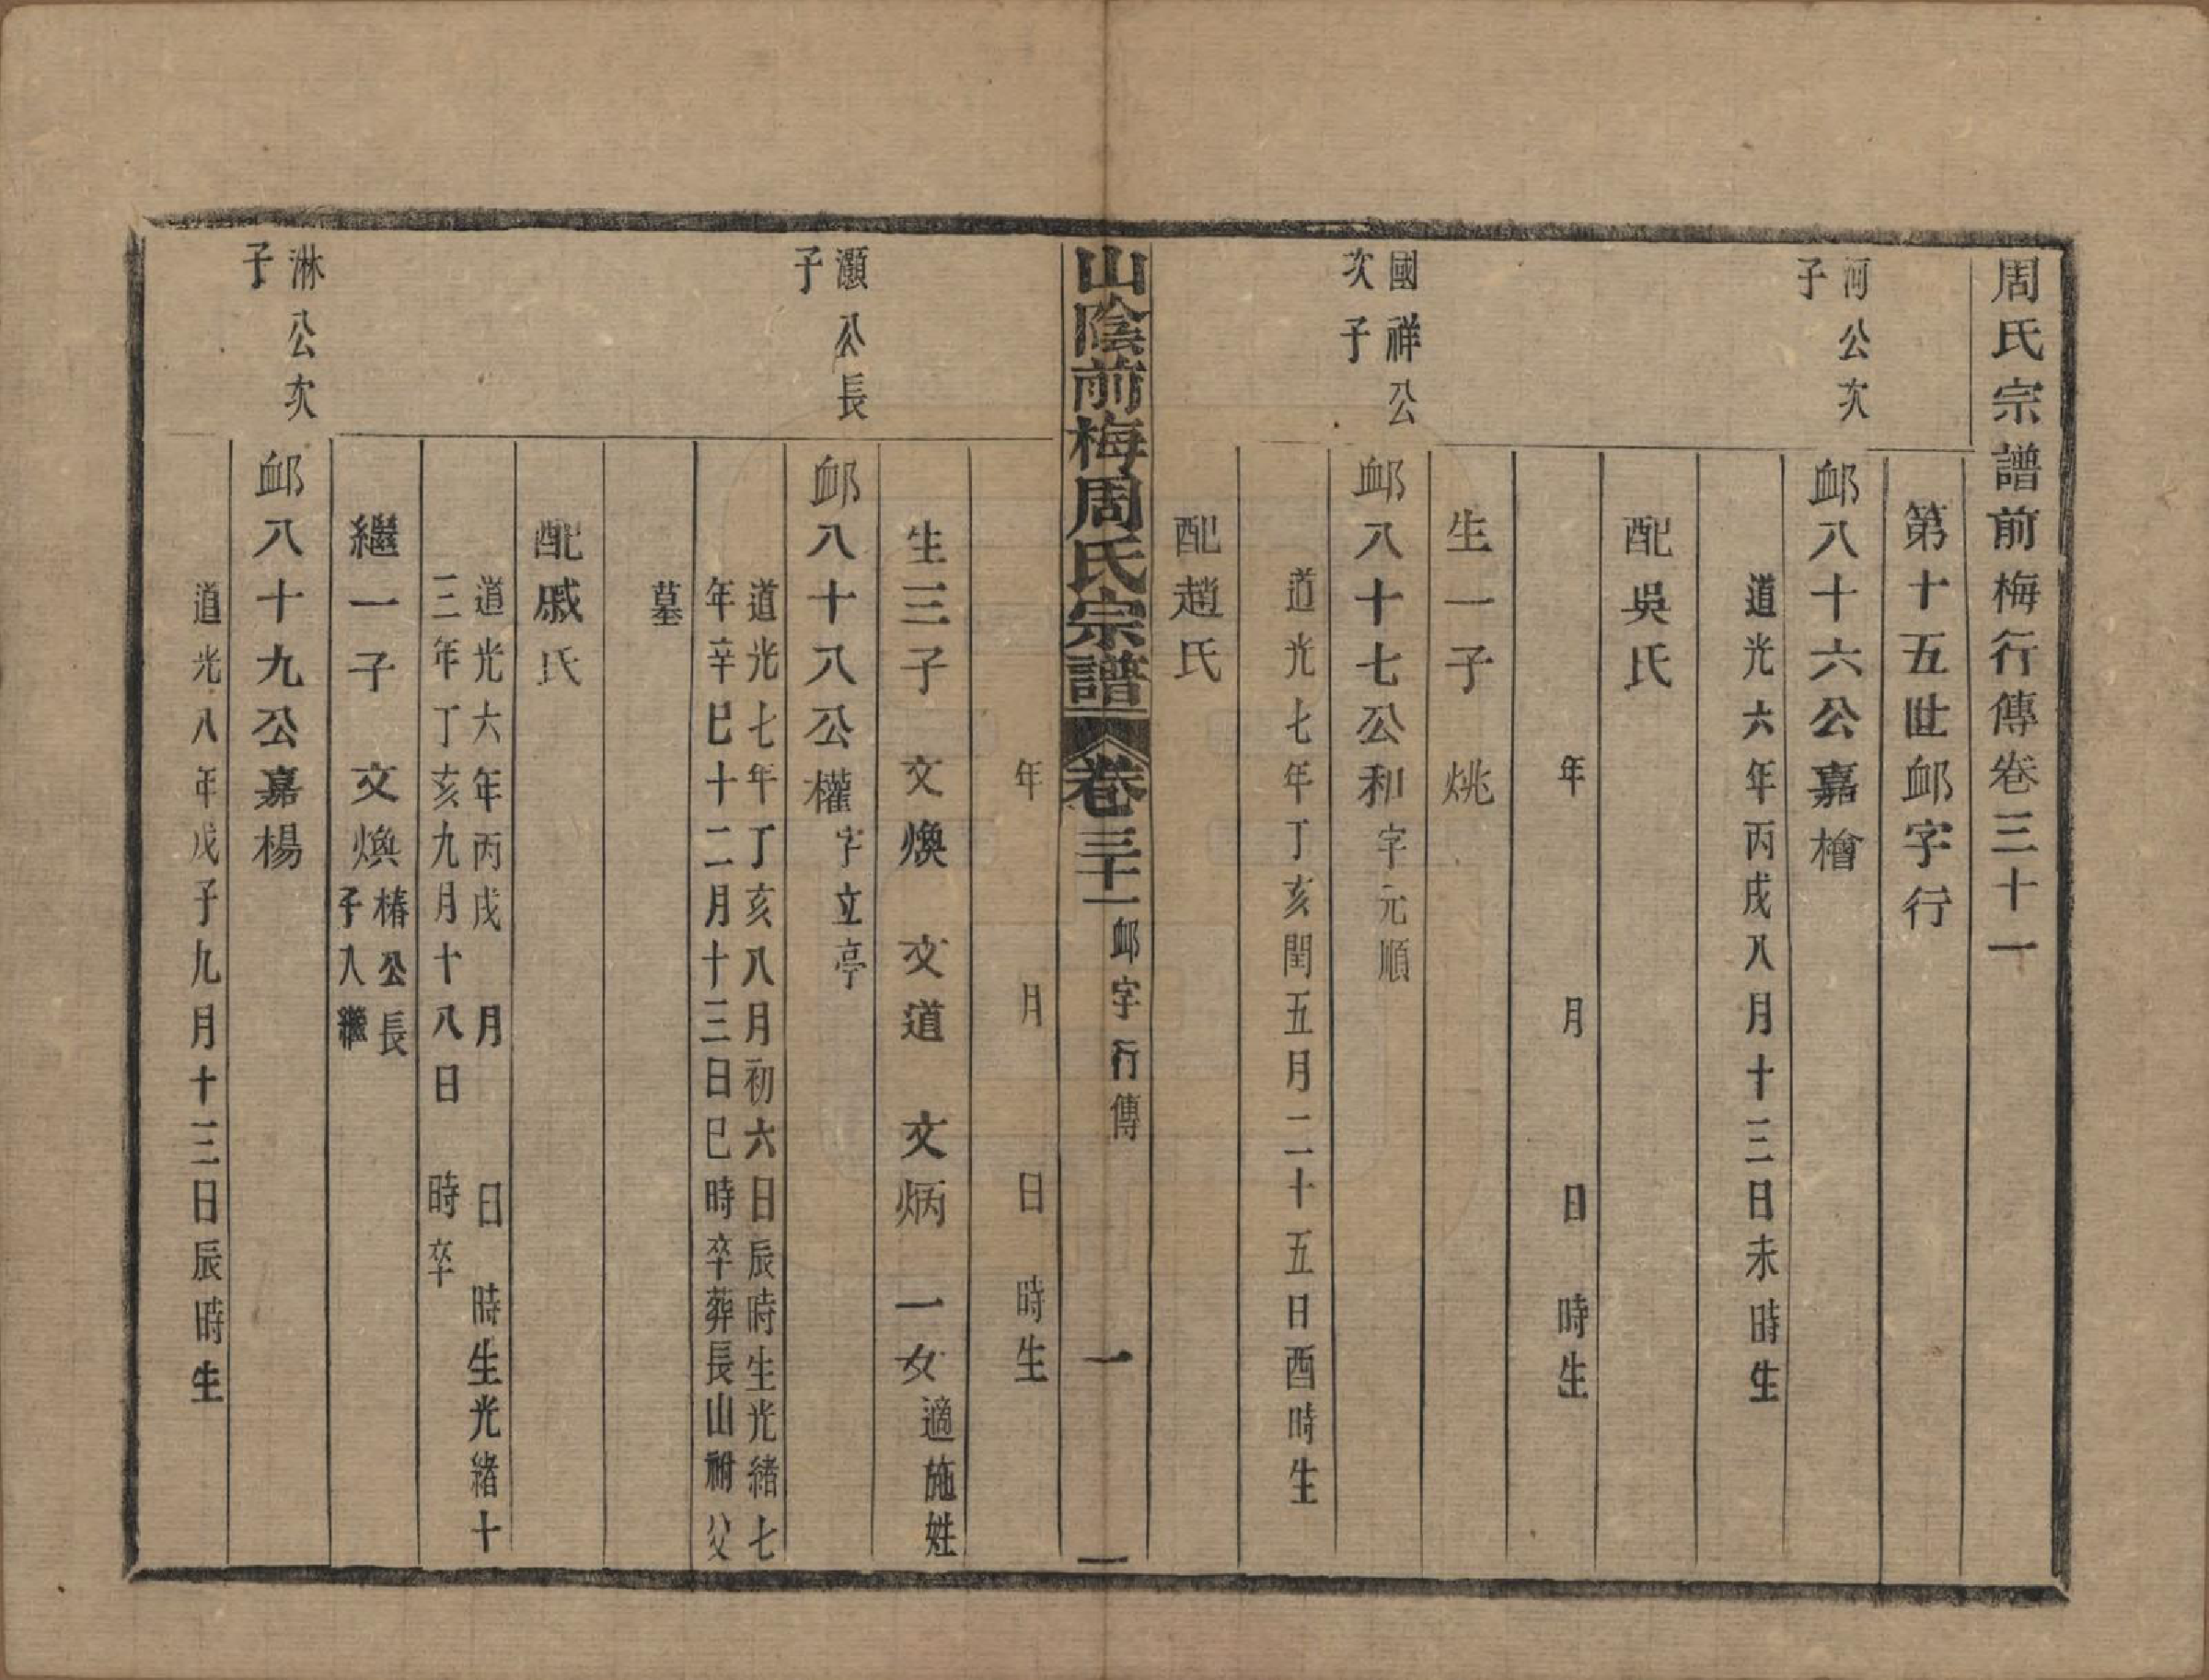 周氏宗譜前梅行傳卷三十一
第十五世䘏字行
河公次
子
䘏八十六公嘉檜
道光六年丙戌八月十三日未時生
配吳氏
年　月　日　時生
生一子　烑
國祥公
次子
䘏八十七公和字元順
道光七年丁亥閏五月二十五日酉時生
配趙氏
山陰前梅周氏宗譜　卷三十一　䘏字行傳　一
年　月　日　時生
生三子　文煥　文道　文炳　一女適施姓
灝公長
子
䘏八十八公權字立亭
道光七年丁亥八月初六日辰時生光緒七
年辛巳十二月十三日巳時卒葬長山祔父
墓
配戚氏
道光六年丙戌　月　日　時生光緒十
三年丁亥九月十八日　時卒
繼一子　文煥椿公長
子入繼
淋公次
子
䘏八十九公嘉楊
道光八年戊子九月十三日辰時生